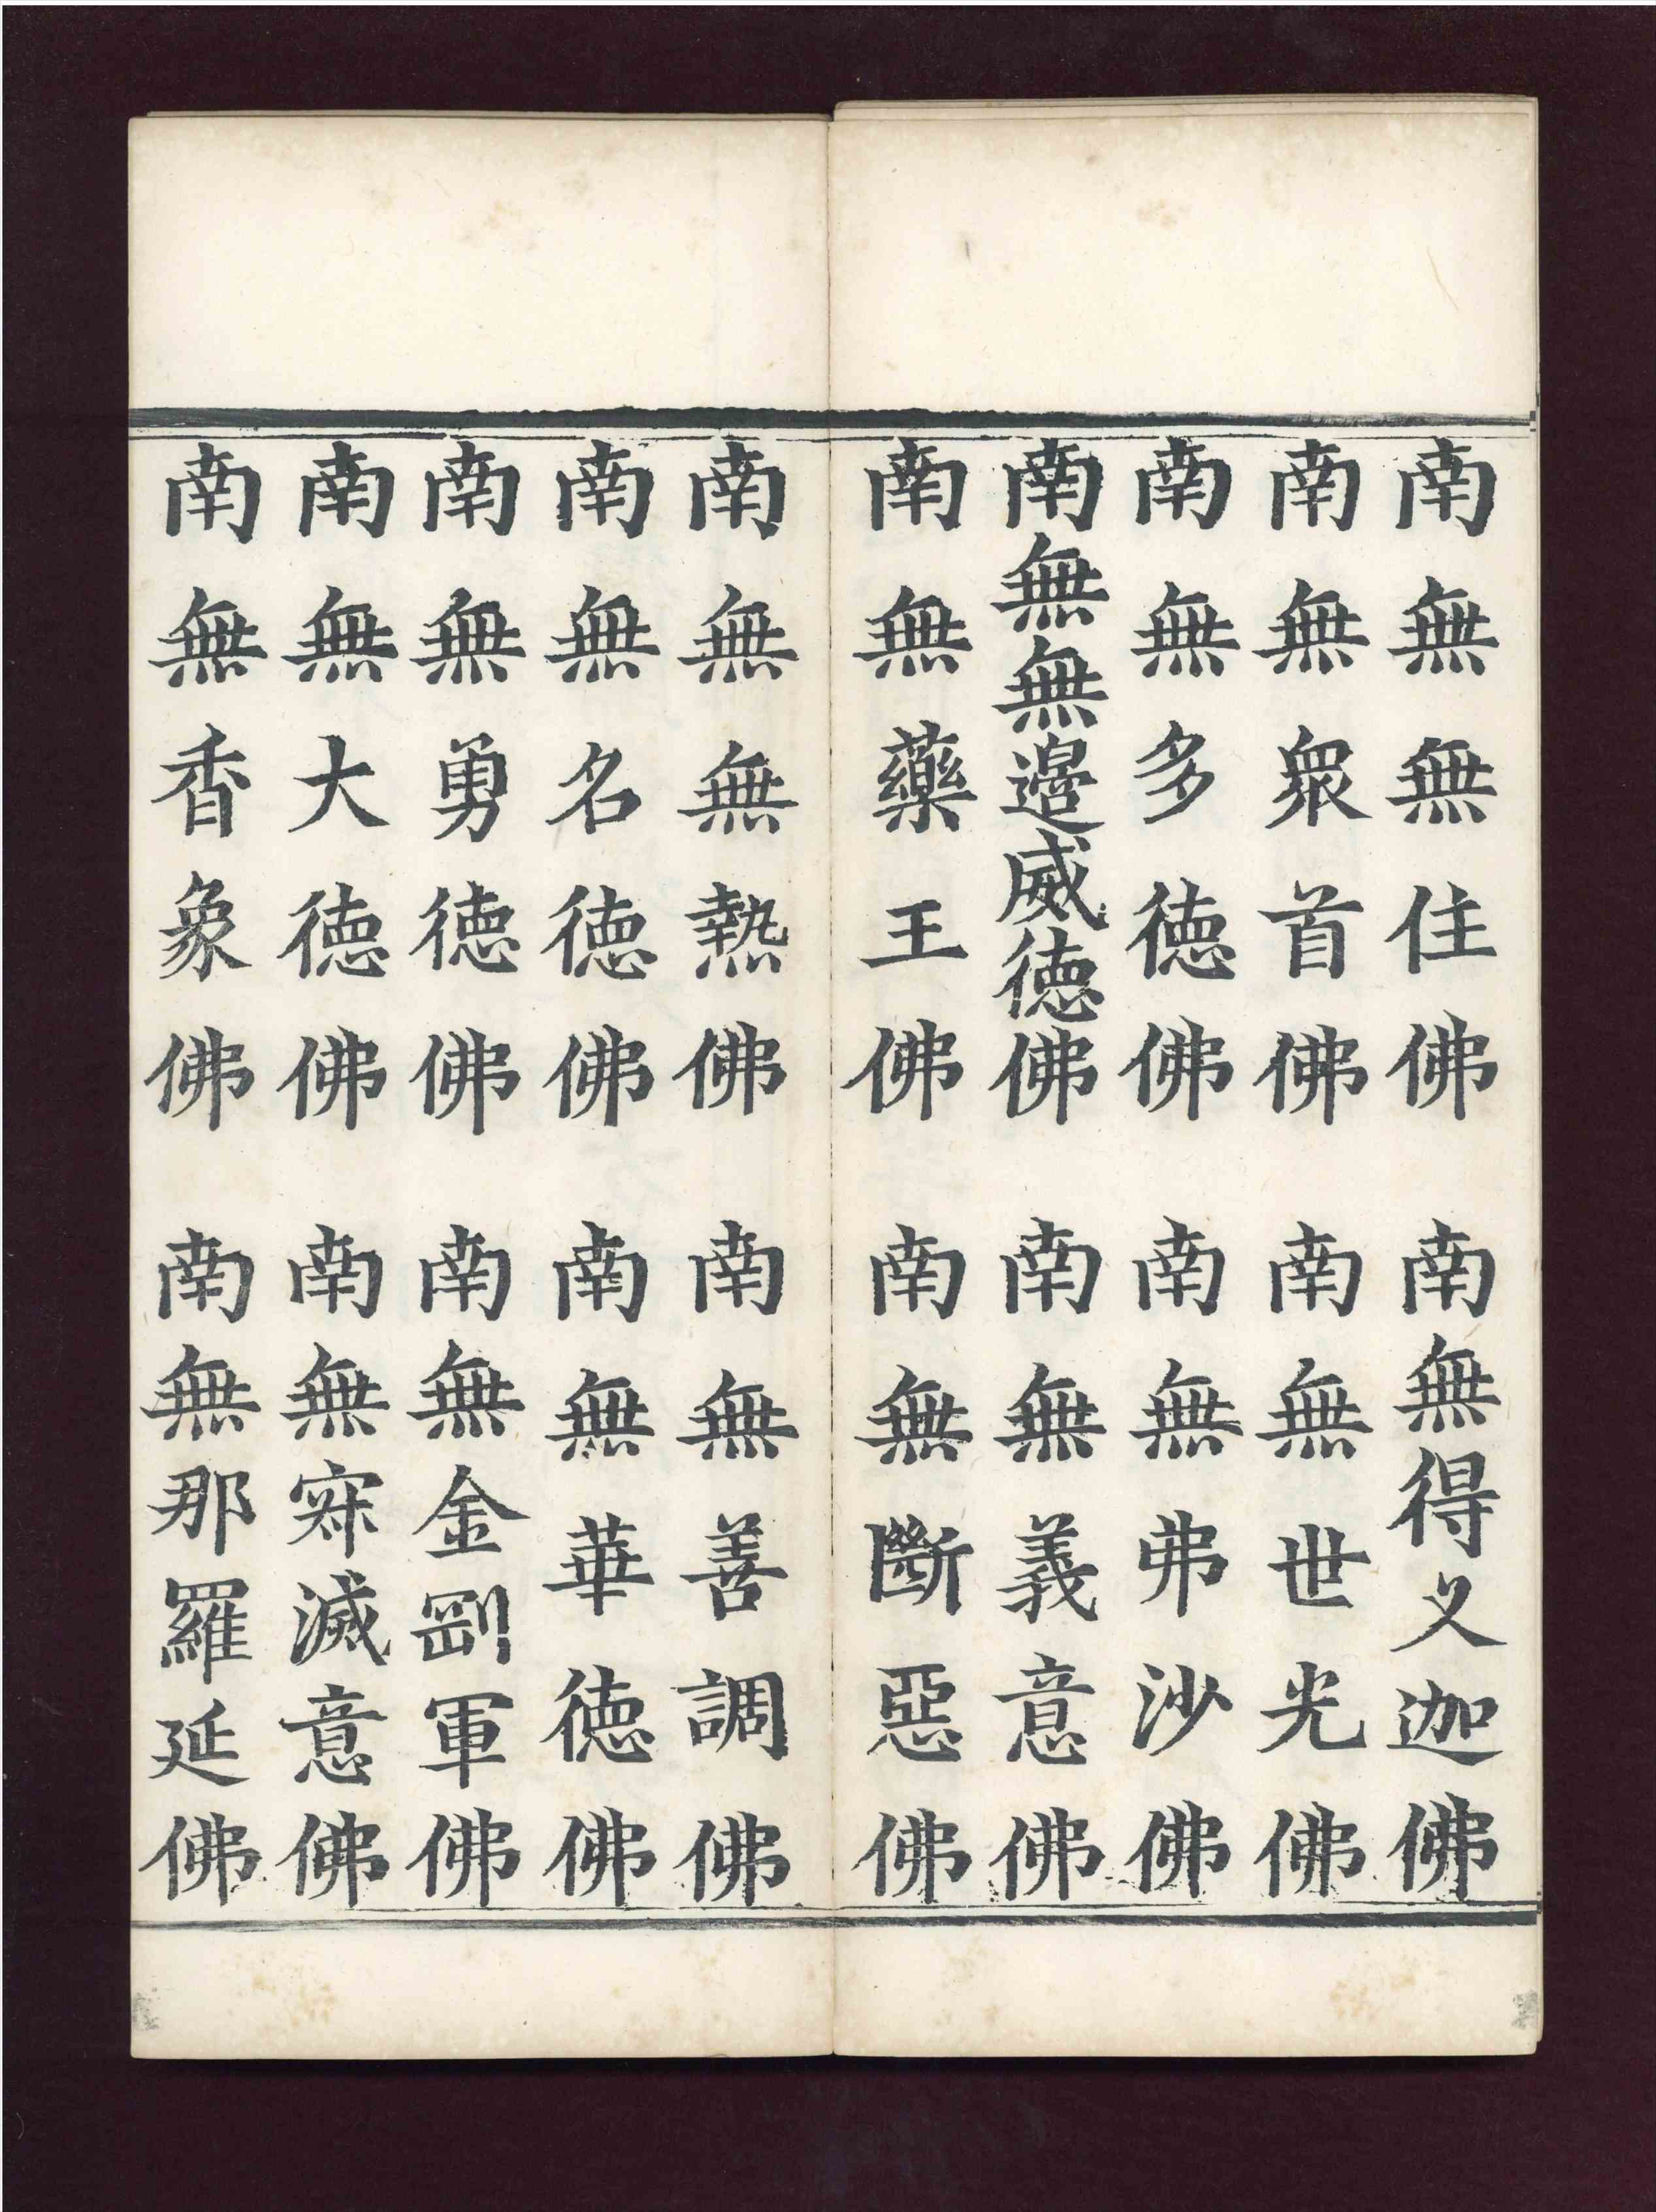 南無無住佛　南無得叉迦佛
南無眾首佛　南無世光佛
南無多德佛　南無弗沙佛
南無無邊威德佛　南無義意佛
南無藥王佛　南無斷惡佛
南無無熱佛　南無善調佛
南無名德佛　南無華德佛
南無勇德佛　南無金剛軍佛
南無大德佛　南無寂滅意佛
南無香象佛　南無那羅延佛